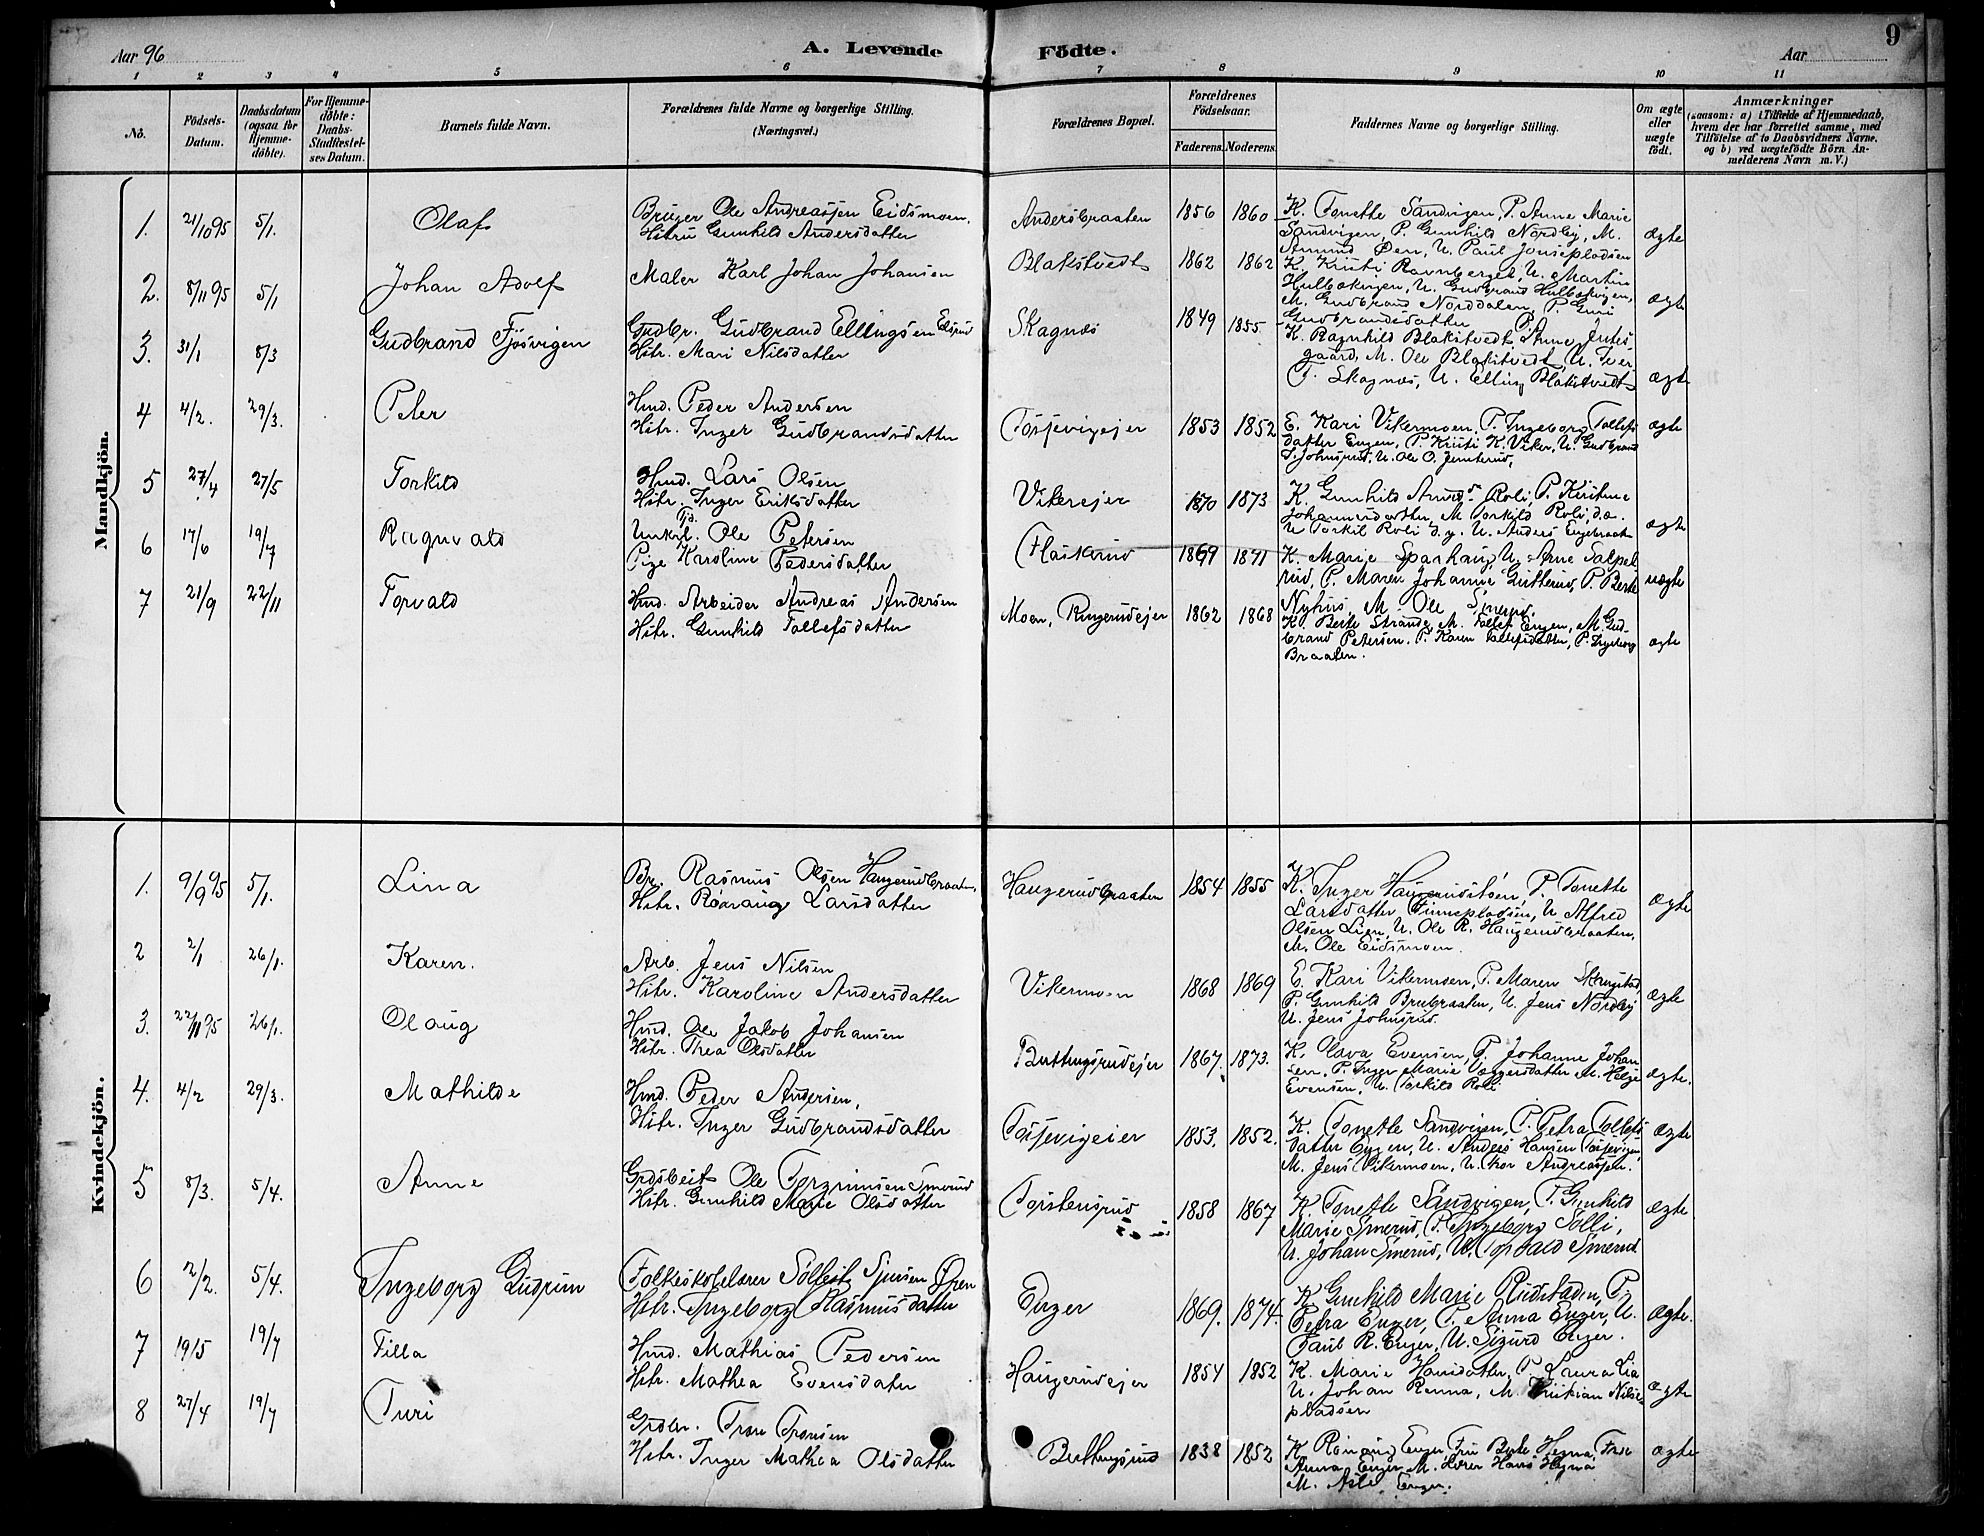 Aar 96
A. Levende Födte.
Aar
9
1 2 3 4 5 6 7 8 9 10 11
No.
Födsels-Datum.
Daabsdatum (ogsaa for Hjemme-döbte).
For Hjemme-döbte: Daabs-Stadfæstel-ses Datum.
Barnets fulde Navn.
Forældrenes fulde Navne og borgerlige Stilling. (Næringsvei.)
Forældrenes Bopæl.
Forældrenes Födselsaar.
Faderens. Moderens.
Faddernes Navne og borgerlige Stilling.
Om ægte eller uægte födt.
Anmærkninger
(saasom: a) i Tilfælde af Hjemmedaab, hvem der har forrettet samme, med Tilföielse af to Daabsvidners Navne, og b) ved uægtefödte Börn An-melderens Navn m. V.)
Mandkjön.
1. 21/10 95 5/1. Olaf
Bruger Ole Andreassen Eidsmoen.
Hstru Gunhild Andersdatter
Andersbraaten 1856 1860
K. Tonette Sandvigen, P. Anne Marie
Sandvigen, P. Gunhild Nordby, M.
Amund Øen, U. Paul Jonsepladsen
ægte
2. 8/11 95 5/1 Johan Adolf
Maler Karl Johan Johansen
Blakstvedt 1862 1862
K. Kristi Ravnberget, U. Martin
Hulbakvigen, U. Gudbrand Hulbakvigen,
M. Gudbrand Norddalen, P. Guri
Gudbrandsdatter
ægte
3. 31/1 8/3 Gudbrand Fjösvigen
Gudbr. Gudbrand Ellingsen Elsrud
Hstr. Mari Nilsdatter
Skagnæs 1849 1855
K. Ragnhild Blakstvedt, P. Anne
gaard, M. Ole Blakstvedt, U. Iver
T. Skagnæs, U. Elling Blakstvedt
ægte
4 4/2. 29/3. Peter
Hmd. Peder Andersen
Hstr. Inger Gudbrandsdatter
Torjevigejer 1853 1852
E. Kari Vikermoen, P. Ingeborg Tollefs
datter Engen, P. Kristi K. Viker, U. Gudbrand
S. Johnsrud, U. Ole O.
ægte
5 27/4 27/5 Torkild
Hmd. Lars Olsen
Hstr. Inger Eriksdatter
Vikerejer 1870 1873
K. Gunhild Amundsdr. Roli, P. Kristine
Johannesdatter, M. Torkild Roli, d.æ.
U. Torkil Roli d.y. U. Anders Engebraaten
ægte
6 17/6 19/7 Ragnvald
Unkrl. Tjd. Ole Petersen
Pige Karoline Pedersdatter
Flaskerud 1869 1871
K. Marie Sparhaug, U. Arne Salpel-
rud, P. Maren Johanne Gutterud, P. Berte
Nyhus, M. Ole Smerud.
uægte
7 21/9 22/11 Torvald
Hmd. Arbeider Andreas Andersen
Hstr. Gunhild Tollefsdatter
Moen, Ringerudejer 1862 1868
K. Berte Strande, M. Tollef Engen, M. Gud-
brand Petersen. P. Karen Tollefsdatter, P. Ingeborg
Braaten.
ægte
Kvindekjön.
1. 9/9 95 5/1. Lina
Br. Rasmus Olsen Haugerudbraaten,
Hstr. Rönnaug Larsdatter
Haugerudbraaten 1854 1855
K. Inger Haugerudstöen, P. Tonette
Larsdatter Finnepladsen, U. Alfred
Olsen Lien, U. Ole R. Haugerudbraaten,
M. Ole Eidsmoen.
ægte
2 2/1 26/1. Karen.
Arb. Jens Nilsen
Hstr. Karoline Andersdatter
Vikermoen 1868 1869
E. Kari Vikermoen, P. Maren Skrugstad,
P. Gunhild Brubraaten, U. Jens Nordby
U. Jens Johnsrud.
ægte
3. 22/11 95 26/1. Olaug
Hmd. Ole Jakob Johansen
Hstr. Thea Olsdatter
Buttingsrudejer 1867. 1873.
K. Olava Evensen, P. Johanne Johan
sen, P. Inger Marie Aagesdatter M. Helge
Evensen, U. Torkild Roli
ægte.
4. 4/2 29/3. Mathilde
Hmd. Peder Andersen,
Hstr. Inger Gudbrandsdatter
Torjevigeier 1853. 1852.
K. Tonette Sandvigen, P. Petra Tollefs
datter Engen, U. Anders Hansen Torjevigen,
M. Jens Vikermoen, U. Thor Andreassen.
ægte
5 8/3. 5/4. Anne
Grdsbest. Ole Torgrimsen Smerud
Hstr. Gunhild Marie Olsdatter
Torstensrud 1858 1867
K. Tonette Sandvigen, P. Gunhild
Marie Smerud, P. Ingeborg Solli,
U. Johan Smerud, U. Torvald Smerud.
ægte
6 2/2. 5/4. Ingeborg Gudrun
Folkeskolelærer Söllest Sjursen Øren
Hstr. Ingeborg Rasmusdatter
Enger 1869. 1874.
K Gunhild Marie Rudstaden, P.
Petra Enger, P. Anna Enger, U.
Paul R. Enger, U. Sigurd Enger.
ægte.
7 19/5 19/7 Tilla
Hmd. Mathias Pedersen
Hstr. Mathea Evensdatter
Haugerudejer 1854 1852
K. Marie Hansdatter, P. Laura Lia
U. Johan Renna, M. Kristian Nilse-
pladsen
ægte
8 27/4 19/7 Turi
Grdbr. Tron Tronsen
Hstr. Inger Mathea Olsdatter
Buttingsrud 1838 1852
K Rönnaug Enger, Fru Berte Hegna, Frk
Anna Enger, M. Lærer Hans Hegna
M. Asle Enger.
ægte